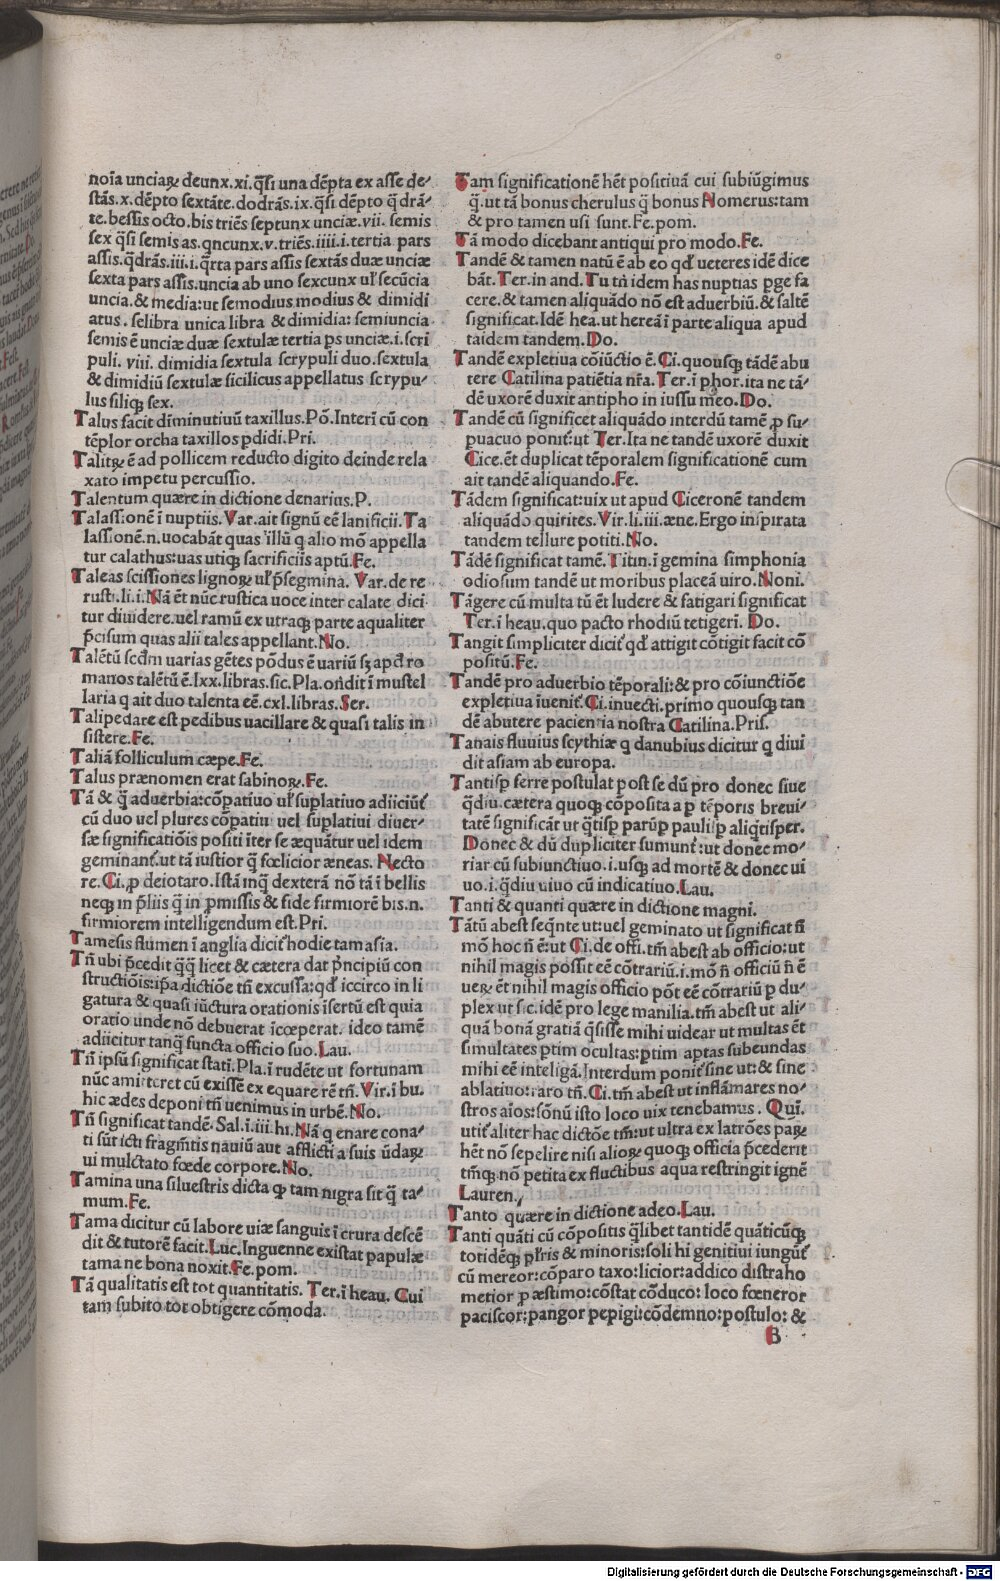 noīa unciaꝝ deunx.xi.q̄si una dēpta ex asse de⸗
stās.x.dēpto sextāte.dodrās.ix.q̄si dēpto q̄drā⸗
te.bessis octo.bis triēs septunx unciæ.vii. semis
sex q̄si semis as.qncunx.v.triēs.iiii.i.tertia pars
assis.q̄drās.iii.i.q̄rta pars assis sextās duæ unciæ
sexta pars assis.uncia ab uno sexcunx uł secūcia
uncia.& media:ut semodius modius & dimidi
atus. selibra unica libra & dimidia: semiuncia
semis ē unciæ duæ sextulæ tertia ps unciæ.i.scri
puli. viii. dimidia sextula scrypuli duo.sextula
& dimidiū sextulæ sicilicus appellatus scrypu⸗
lus siliqꝫ sex.
Talus facit diminutiuū taxillus.Pō.Interī cū con
tēplor orcha taxillos pdidi.Pri.
Talitꝝ ē ad pollicem reducto digito deinde rela
xato impetu percussio.
Talentum quære in dictione denarius.P.
Talassionē ī nuptiis.Var.ait signū eē lanificii.Ta
lassionē.n.uocabāt quas illū q alio mō appella
tur calathus:uas utiqꝫ sacrificiis aptū.Fe.
Taleas scissiones lignoꝝ uł p̄segmina. Var.de re
rusti.li.i.Nā ēt nūc rustica uoce inter calate dici
tur diuidere.uel ramū ex utraqꝫ parte aqualiter
p̄cisum quas alii tales appellant.No.
Talētū secdm uarias gētes pōdus ē uariū sꝫ apd ro
manos talētū ē.lxx.libras.sic.Pla.on̄dit ī mustel
laria q ait duo talenta eē.cxl.libras.Ser.
Talipedare est pedibus uacillare & quasi talis in
sistere.Fe.
Taliā folliculum cæpe.Fe.
Talus prænomen erat sabinoꝝ.Fe.
Tā & q̄ aduerbia:cōpatiuo uł suplatiuo adiiciūt
cū duo uel plures cōpatiui uel suplatiui diuer⸗
sæ significatiōis positi iter se æquātur uel idem
geminanť.ut tā iustior q̄ fœlicior æneas. Necto
re.Ci.ꝓ deiotaro.Istā inq̄ dexterā nō tā ī bellis
neqꝫ in p̄liis q̄ in pmissis & fide firmiorē bis.n.
firmiorem intelligendum est.Pri.
Tamesis flumen ī anglia diciť hodie tam asia.
Tn̄ ubi p̄cedit q̄q̄ licet & cætera dat p̄ncipiū con
structiōis:ip̄a dictiōe tn̄ excussa:qd iccirco in li
gatura & quasi iūctura orationis isertū est quia
oratio unde nō debuerat icœperat. ideo tamē
adiicitur tanq̄ functa officio suo.Lau.
Tn̄ ipsū significat stati.Pla.ī rudēte ut fortunam
nūc amitteret cū exissē ex equare rē tn̄. Vir.ī bu.
hic ædes deponi tn̄ uenimus in urbē.No.
Tn̄ significat tandē. Sal.i.iii.hi.Nā q enare cona⸗
ti sūt icti fragm̄tis nauiū aut afflicti a suis ūdaꝝ
ui mulctato fœde corpore.No.
Tamina una siluestris dicta ꝙ tam nigra sit q̄ ta⸗
mum.Fe.
Tama dicitur cū labore uiæ sanguis ī crura descē
dit & tutorē facit.Luc.Inguenne existat papulæ
tama ne bona noxit.Fe.pom.
Tā qualitatis est tot quantitatis. Ter.ī heau. Cui
tam subito tot obtigere cōmoda.
Tam significationē hēt positiuā cui subiūgimus
q̄.ut tā bonus cherulus q̄ bonus Nomerus:tam
& pro tamen usi sunt.Fe.pom.
Tā modo dicebant antiqui pro modo.Fe.
Tandē & tamen natū ē ab eo qd ueteres idē dice
bāt.Ter.in and.Tu tn̄ idem has nuptias pge fa
cere.& tamen aliquādo nō est aduerbiū.& saltē
significat.Idē hea.ut hereā ī parte aliqua apud
taidem tandem.Do.
Tandē expletiua cōiūctio ē.Ci.quousqꝫ tādē abu
tere Catilina patiētia nr̄a.Ter.ī phor.ita ne tā⸗
dē uxorē duxit antipho in iussu meo.Do.
Tandē cū significet aliquādo interdū tamē ꝓ su⸗
puacuo poniť:ut Ter.Ita ne tandē uxorē duxit
Cice.ēt duplicat tēporalem significationē cum
ait tandē aliquando.Fe.
Tādem significat:uix ut apud Ciceronē tandem
aliquādo quirites.Vir.li.iii.æne.Ergo inspirata
tandem tellure potiti.No.
Tādē significat tamē.Titin.ī gemina simphonia
odiosum tandē ut moribus placeā uiro.Noni.
Tāgere cū multa tū ēt ludere & fatigari significat
Ter.ī heau.quo pacto rhodiū tetigeri. Do.
Tangit simpliciter diciť qd attigit cōtigit facit cō
positū.Fe.
Tandē pro aduerbio tēporali:& pro cōiunctiōe
expletiua iueniť.Ci.inuecti.primo quousqꝫ tan
dē abutere pacientia nostra Catilina.Pris.
Tanais fluuius scythiæ q danubius dicitur q diui
dit asiam ab europa.
Tantisp ferre postulat post se dū pro donec siue
q̄diu.cætera quoqꝫ cōposita a p tēporis breui⸗
tatē significāt ut q̄tisp parūp paulisp aliq̄tisper.
Donec & dū dupliciter sumunť:ut donec mo⸗
riar cū subiunctiuo.i.usqꝫ ad mortē & donec ui
uo.i.q̄diu uiuo cū indicatiuo.Lau.
Tanti & quanti quære in dictione magni.
Tātū abest seq̄nte ut:uel geminato ut significat fi
mō hoc n̄ ē:ut Ci.de offi.tm̄ abest ab officio:ut
nihil magis possit eē cōtrariū.i.mō n̄ officiū n̄ ē
ueꝝ ēt nihil magis officio pōt eē cōtrariū p du⸗
plex ut sic.idē pro lege manilia.tm̄ abest ut ali⸗
quā bonā gratiā q̄sisse mihi uidear ut multas ēt
simultates ptim ocultas:ptim aptas subeundas
mihi eē inteligā.Interdum poniť sine ut:& sine
ablatiuo:raro tn̄.Ci.tm̄ abest ut inflāmares no⸗
stros aīos:sōnū isto loco uix tenebamus. Qui.
utiť aliter hac dictōe tm̄:ut ultra ex latrōes paꝝ
hēt nō sepelire nisi alioꝝ quoqꝫ officia p̄cederit
tm̄qꝫ nō petita ex fluctibus aqua restringit ignē
Lauren.
Tanto quære in dictione adeo.Lau.
Tanti quāti cū cōpositis q̄libet tantidē quāticūqꝫ
totidēqꝫ plr̄is & minoris:soli hi genitiui iungūť
cū mereor:cōparo taxo:licior:addico distraho
metior ꝓ æstimo:cōstat cōduco: loco fœneror
paciscor:pangor pepigi:cōdemno:postulo: &
B
Digitalisierung gefördert durch die Deutsche Forschungsgemeinschaft - DFG